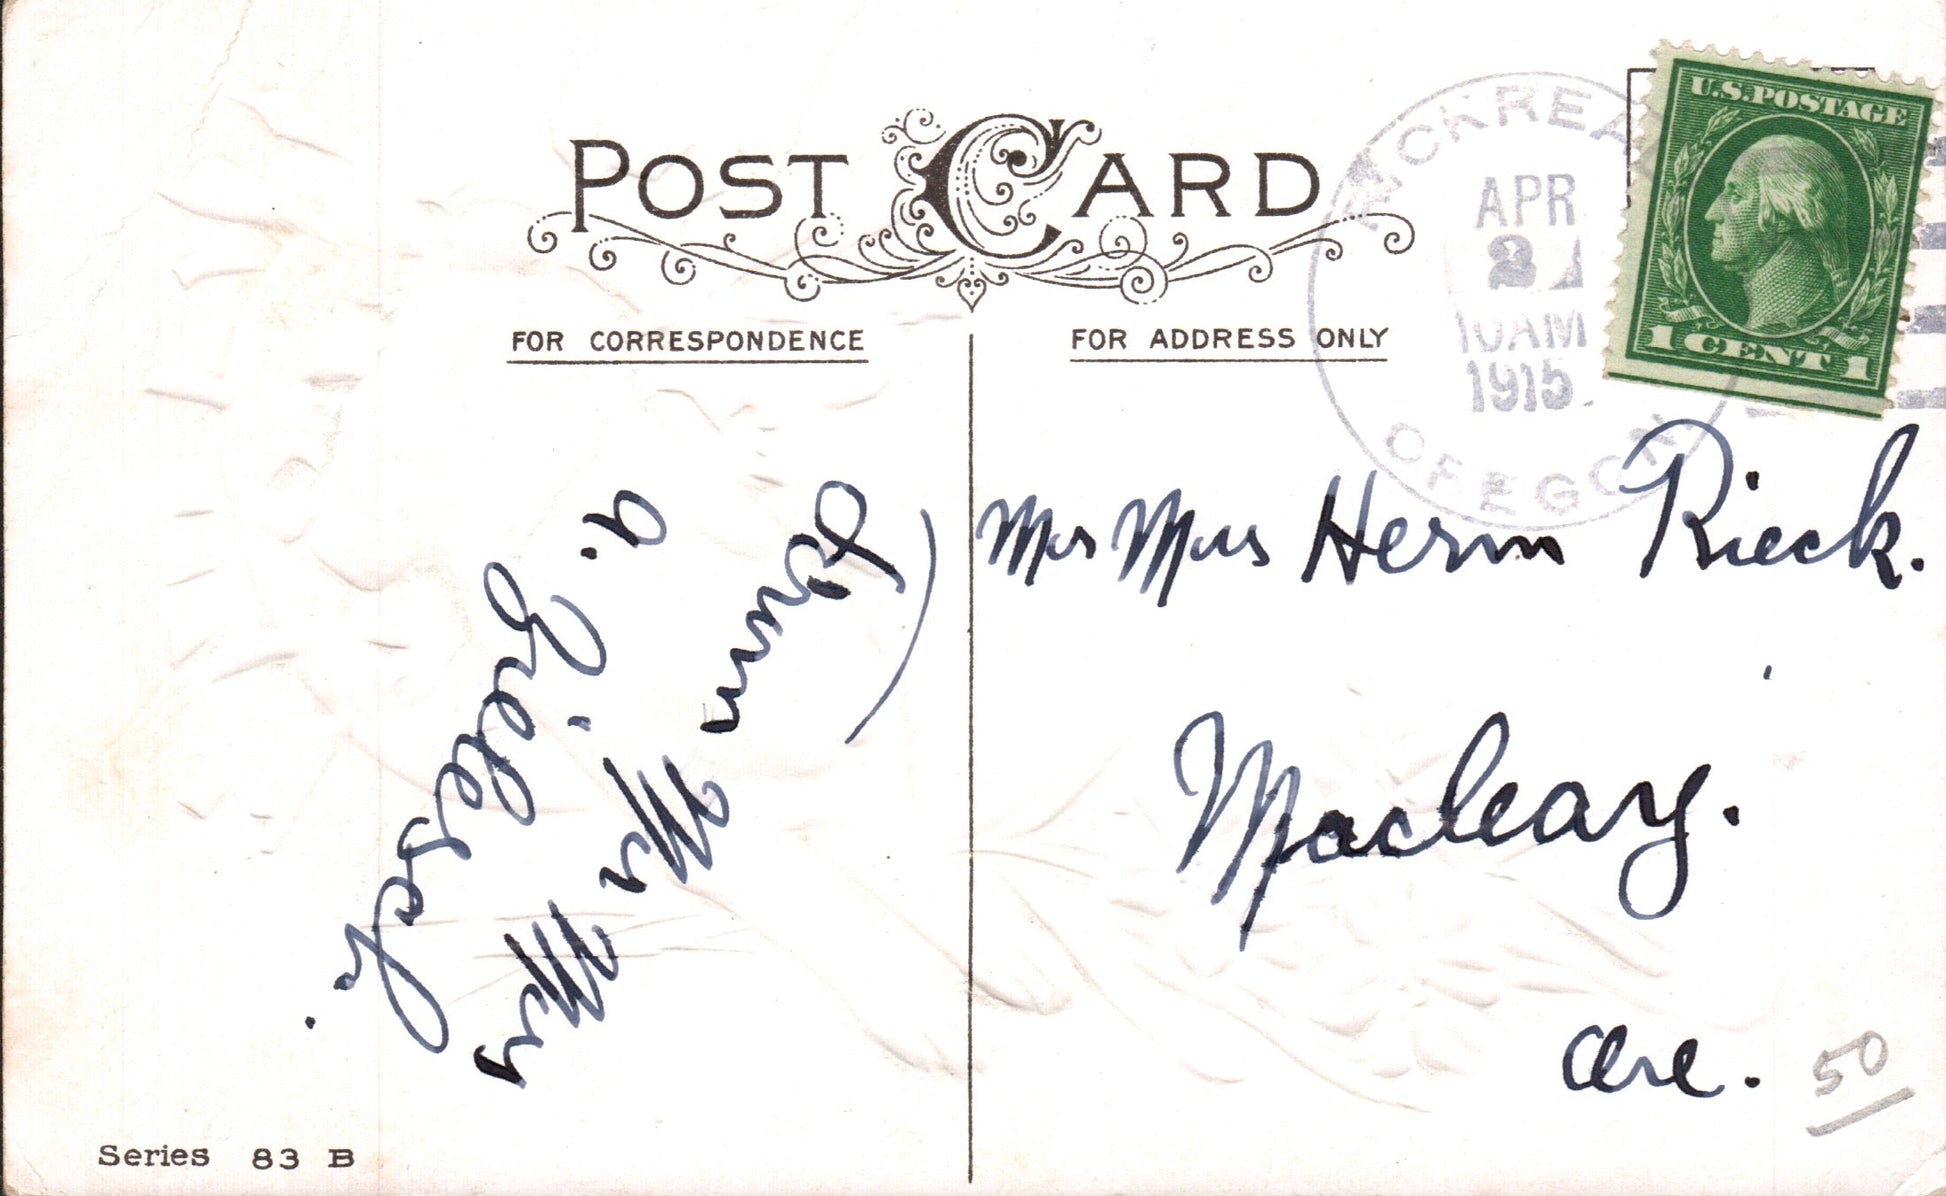 POST CARD
FOR CORRESPONDENCE
FOR ADDRESS ONLY
RICKREAL
APR
2
10AM
1915
OREGON
U.S.POSTAGE
1 CENT 1
Mr Mrs Herm Rieck.
Macleay.
Ore.
50
From
Mr Mrs
A. Zielesch.
Series 83 B